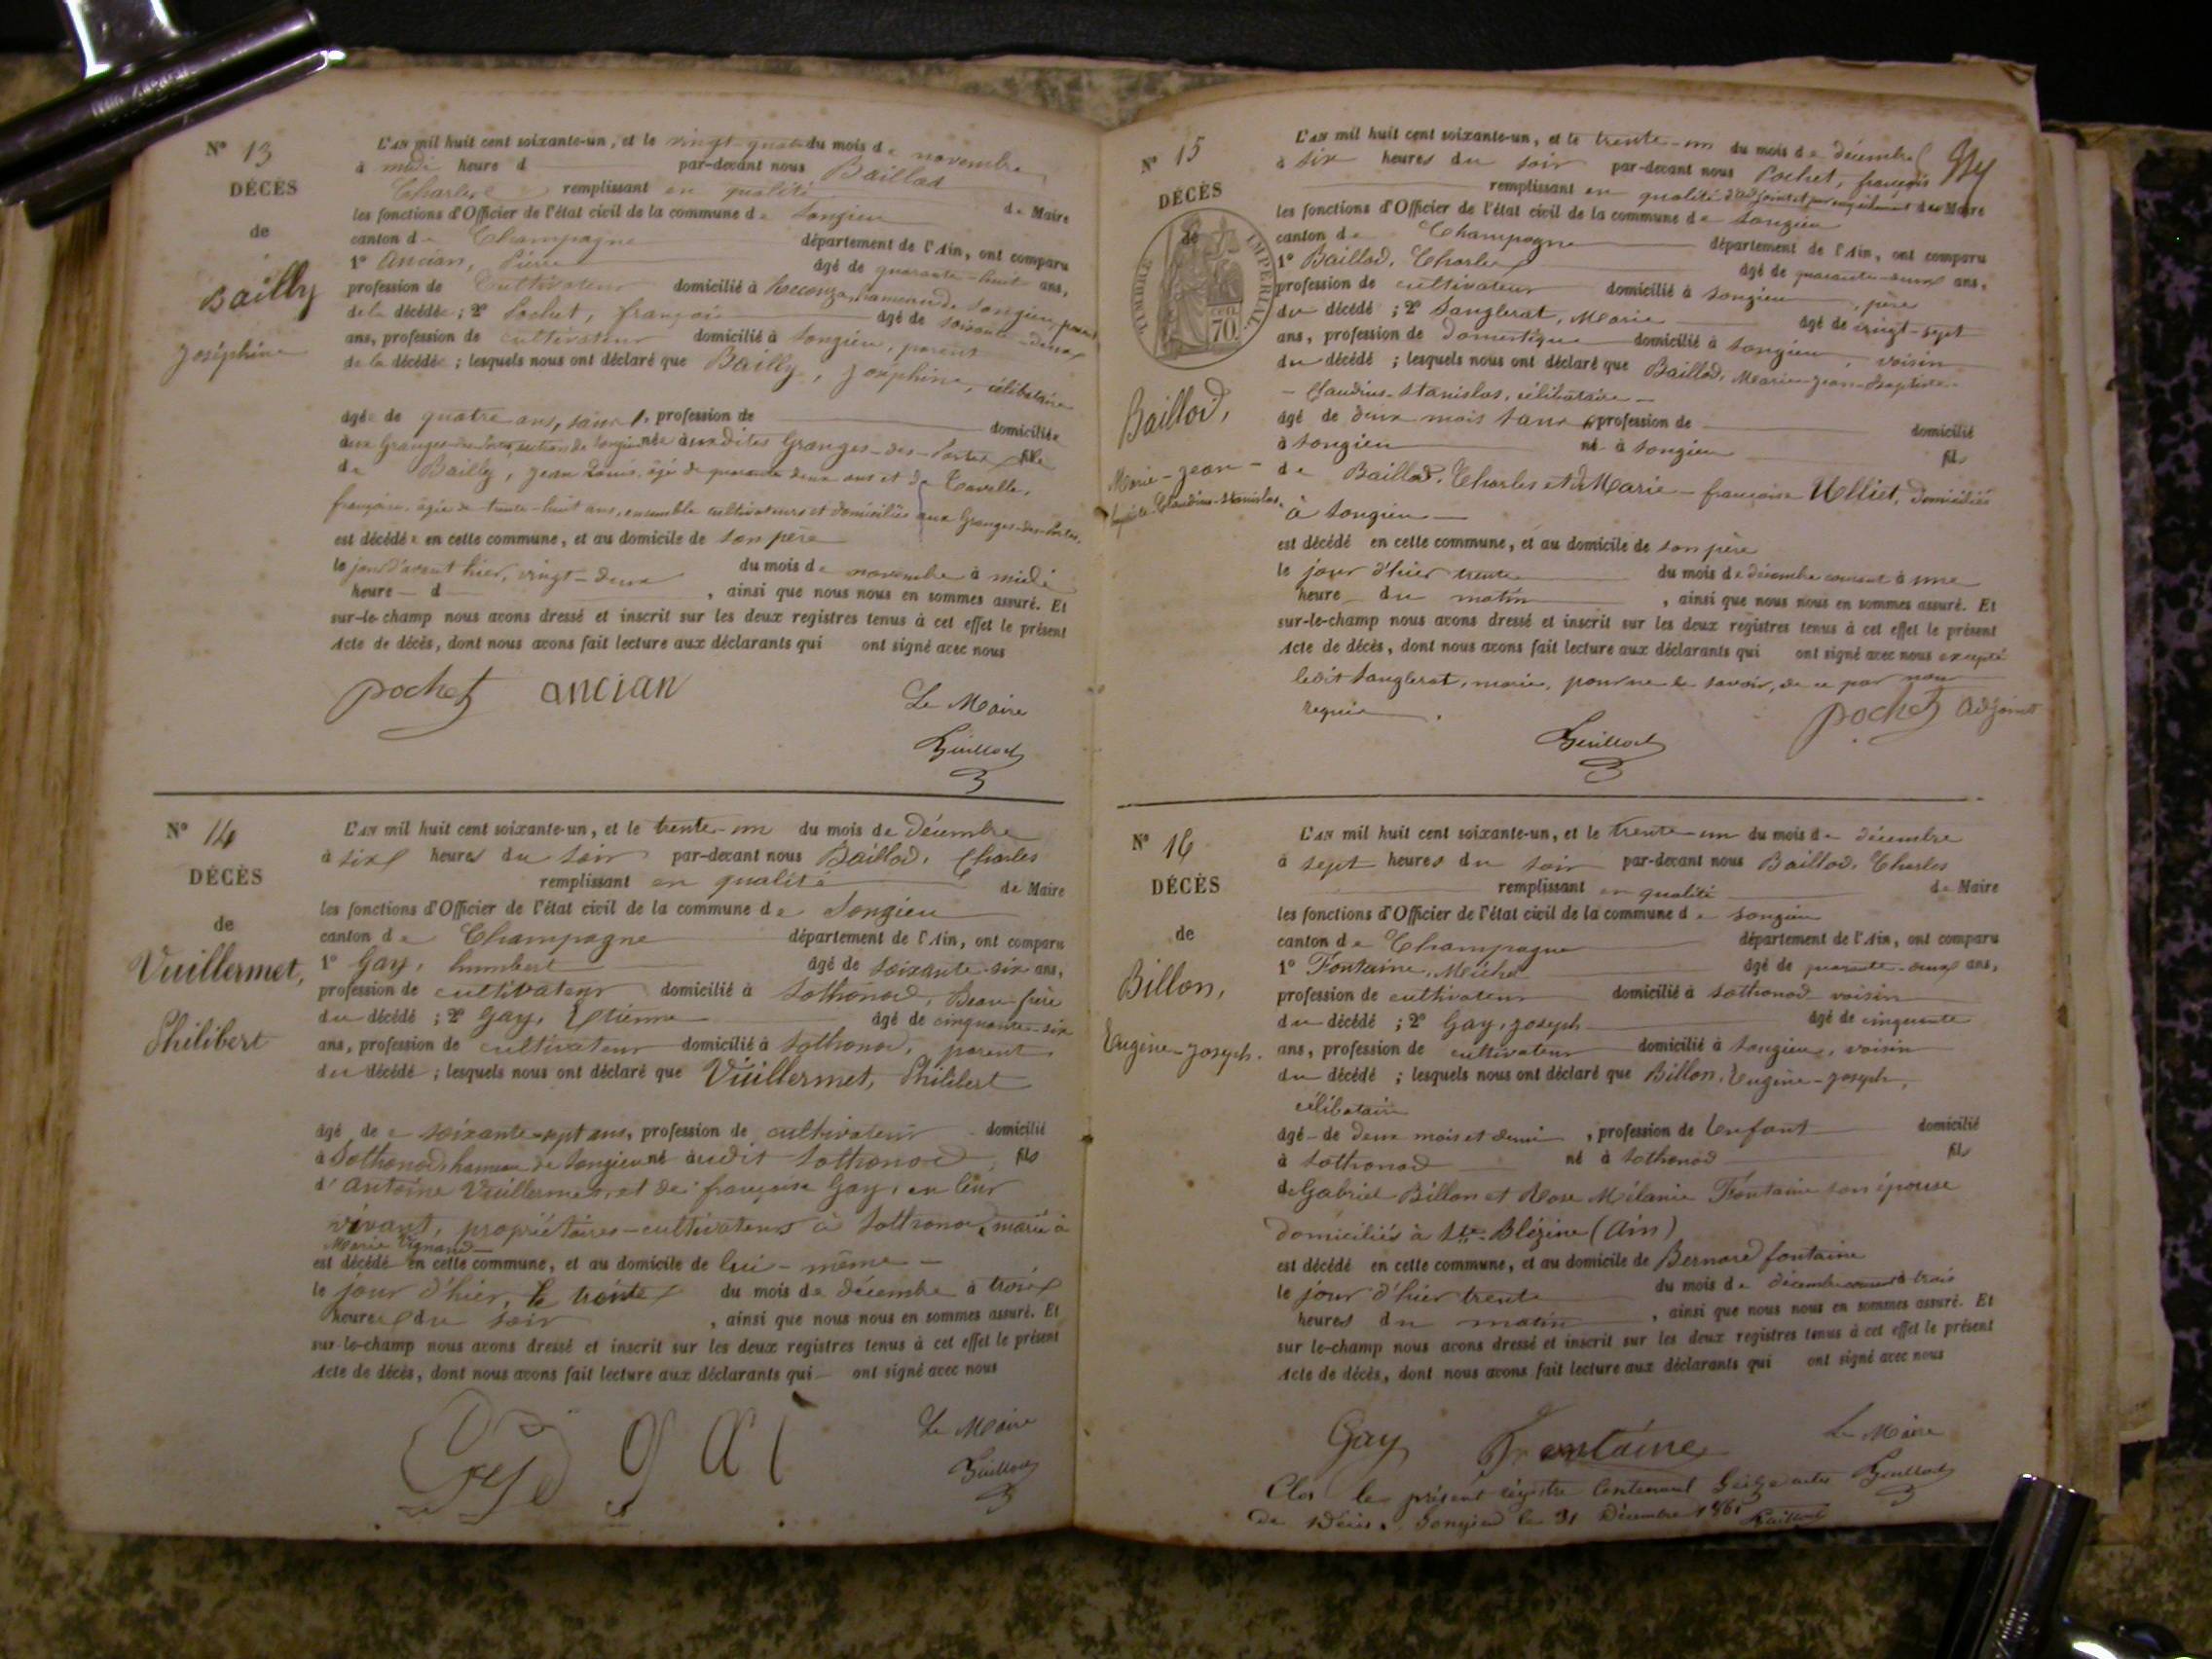 N° 13
DÉCÈS
de
Bailly
Joséphine
L'AN mil huit cent soixante-un, et le vingt-quatre du mois de novembre
à midi heure d par-devant nous Baillod
Charles remplissant en qualité de Maire
les fonctions d'Officier de l'état civil de la commune de Songieu
canton de Champagne département de l'Ain, ont comparu
1° Ancian, Pierre âgé de quarante-huit ans,
profession de Cultivateur domicilié à hameau de Songieu, parent
de la décédée ; 2° Pochet, françois âgé de soixante-deux
ans, profession de cultivateur domicilié à Songieu, parent
de la décédée ; lesquels nous ont déclaré que Bailly, Joséphine, célibataire
âgée de quatre ans, sans profession de domiciliée
aux Granges-des-Portes, section de Songieu née auxdites Granges-des-Portes fille
de Bailly, Jean Louis, âgé de quarante deux ans et de Cavelle,
françoise, âgée de trente-huit ans, ensemble cultivateurs et domiciliés aux Granges-des-Portes.
est décédée en cette commune, et au domicile de son père
le jour d'avant hier, vingt-deux du mois de novembre à midi
heure d , ainsi que nous nous en sommes assuré. Et
sur-le-champ nous avons dressé et inscrit sur les deux registres tenus à cet effet le présent
Acte de décès, dont nous avons fait lecture aux déclarants qui ont signé avec nous
pochet ancian Le Maire
Baillod
N° 14
DÉCÈS
de
Vuillermet,
Philibert
L'AN mil huit cent soixante-un, et le trente-un du mois de Décembre
à six heures du soir par-devant nous Baillod, Charles
remplissant en qualité de Maire
les fonctions d'Officier de l'état civil de la commune de Songieu
canton de Champagne département de l'Ain, ont comparu
1° Gay, humbert âgé de soixante-six ans,
profession de cultivateur domicilié à Sothonod, Beau-frère
du décédé ; 2° Gay, Etienne âgé de cinquante-six
ans, profession de cultivateur domicilié à Sothonod, parent
du décédé ; lesquels nous ont déclaré que Vuillermet, Philibert
âgé de soixante-sept ans, profession de cultivateur domicilié
à Sothonod hameau de Songieu né audit Sothonod, fils
d'Antoine Vuillermet et de françoise Gay, en leur
vivant, propriétaires-cultivateurs à Sothonod, marié à
Marie Vignand
est décédé en cette commune, et au domicile de lui-même
le jour d'hier, le trente du mois de décembre à trois
heures du soir , ainsi que nous nous en sommes assuré. Et
sur-le-champ nous avons dressé et inscrit sur les deux registres tenus à cet effet le présent
Acte de décès, dont nous avons fait lecture aux déclarants qui ont signé avec nous
gai Le Maire
Baillod
N° 15
DÉCÈS
de
TIMBRE IMPÉRIAL
70
Baillod,
Marie-Jean-
Baptiste-Claudius-Stanislas.
L'AN mil huit cent soixante-un, et le trente-un du mois de décembre
à six heures du soir par-devant nous Pochet, françois
remplissant en qualité d'adjoint et par empêchement du Maire
les fonctions d'Officier de l'état civil de la commune de Songieu
canton de Champagne département de l'Ain, ont comparu
1° Baillod, Charles âgé de quarante-deux ans,
profession de cultivateur domicilié à Songieu, père
du décédé ; 2° Sanglerat, Marie âgé de vingt-sept
ans, profession de Domestique domicilié à Songieu, voisin
du décédé ; lesquels nous ont déclaré que Baillod, Marie-Jean-Baptiste-
Claudius-Stanislas, célibataire
âgé de deux mois sans profession de domicilié
à Songieu né à Songieu fils
de Baillod, Charles et de Marie-françoise Ulliet, domiciliés
à Songieu
est décédé en cette commune, et au domicile de son père
le jour d'hier trente du mois de décembre courant à une
heure du matin , ainsi que nous nous en sommes assuré. Et
sur-le-champ nous avons dressé et inscrit sur les deux registres tenus à cet effet le présent
Acte de décès, dont nous avons fait lecture aux déclarants qui ont signé avec nous excepté
ledit Sanglerat, marie, pour ne le savoir, de ce par nous
requis.
Baillod pochet adjoint
N° 16
DÉCÈS
de
Billon,
Eugène-Joseph.
L'AN mil huit cent soixante-un, et le trente-un du mois de décembre
à sept heures du soir par-devant nous Baillod, Charles
remplissant en qualité de Maire
les fonctions d'Officier de l'état civil de la commune de Songieu
canton de Champagne département de l'Ain, ont comparu
1° Fontaine, Michel âgé de quarante-deux ans,
profession de cultivateur domicilié à Sothonod voisin
du décédé ; 2° Gay, Joseph âgé de cinquante
ans, profession de cultivateur domicilié à Songieu, voisin
du décédé ; lesquels nous ont déclaré que Billon, Eugène-Joseph,
célibataire
âgé de deux mois et demi, profession de Enfant domicilié
à Sothonod né à Sothonod fils
de Gabriel Billon et Rose Mélanie Fontaine son épouse
domiciliés à Ste-Blézine (Ain)
est décédé en cette commune, et au domicile de Bernard fontaine
le jour d'hier trente du mois de décembre courant à trois
heures du matin , ainsi que nous nous en sommes assuré. Et
sur-le-champ nous avons dressé et inscrit sur les deux registres tenus à cet effet le présent
Acte de décès, dont nous avons fait lecture aux déclarants qui ont signé avec nous
Gay Fontaine Le Maire
Baillod
Clos le présent régistre Contenant Seize actes
de Décès. Songieu le 31 Décembre 1861 Baillod